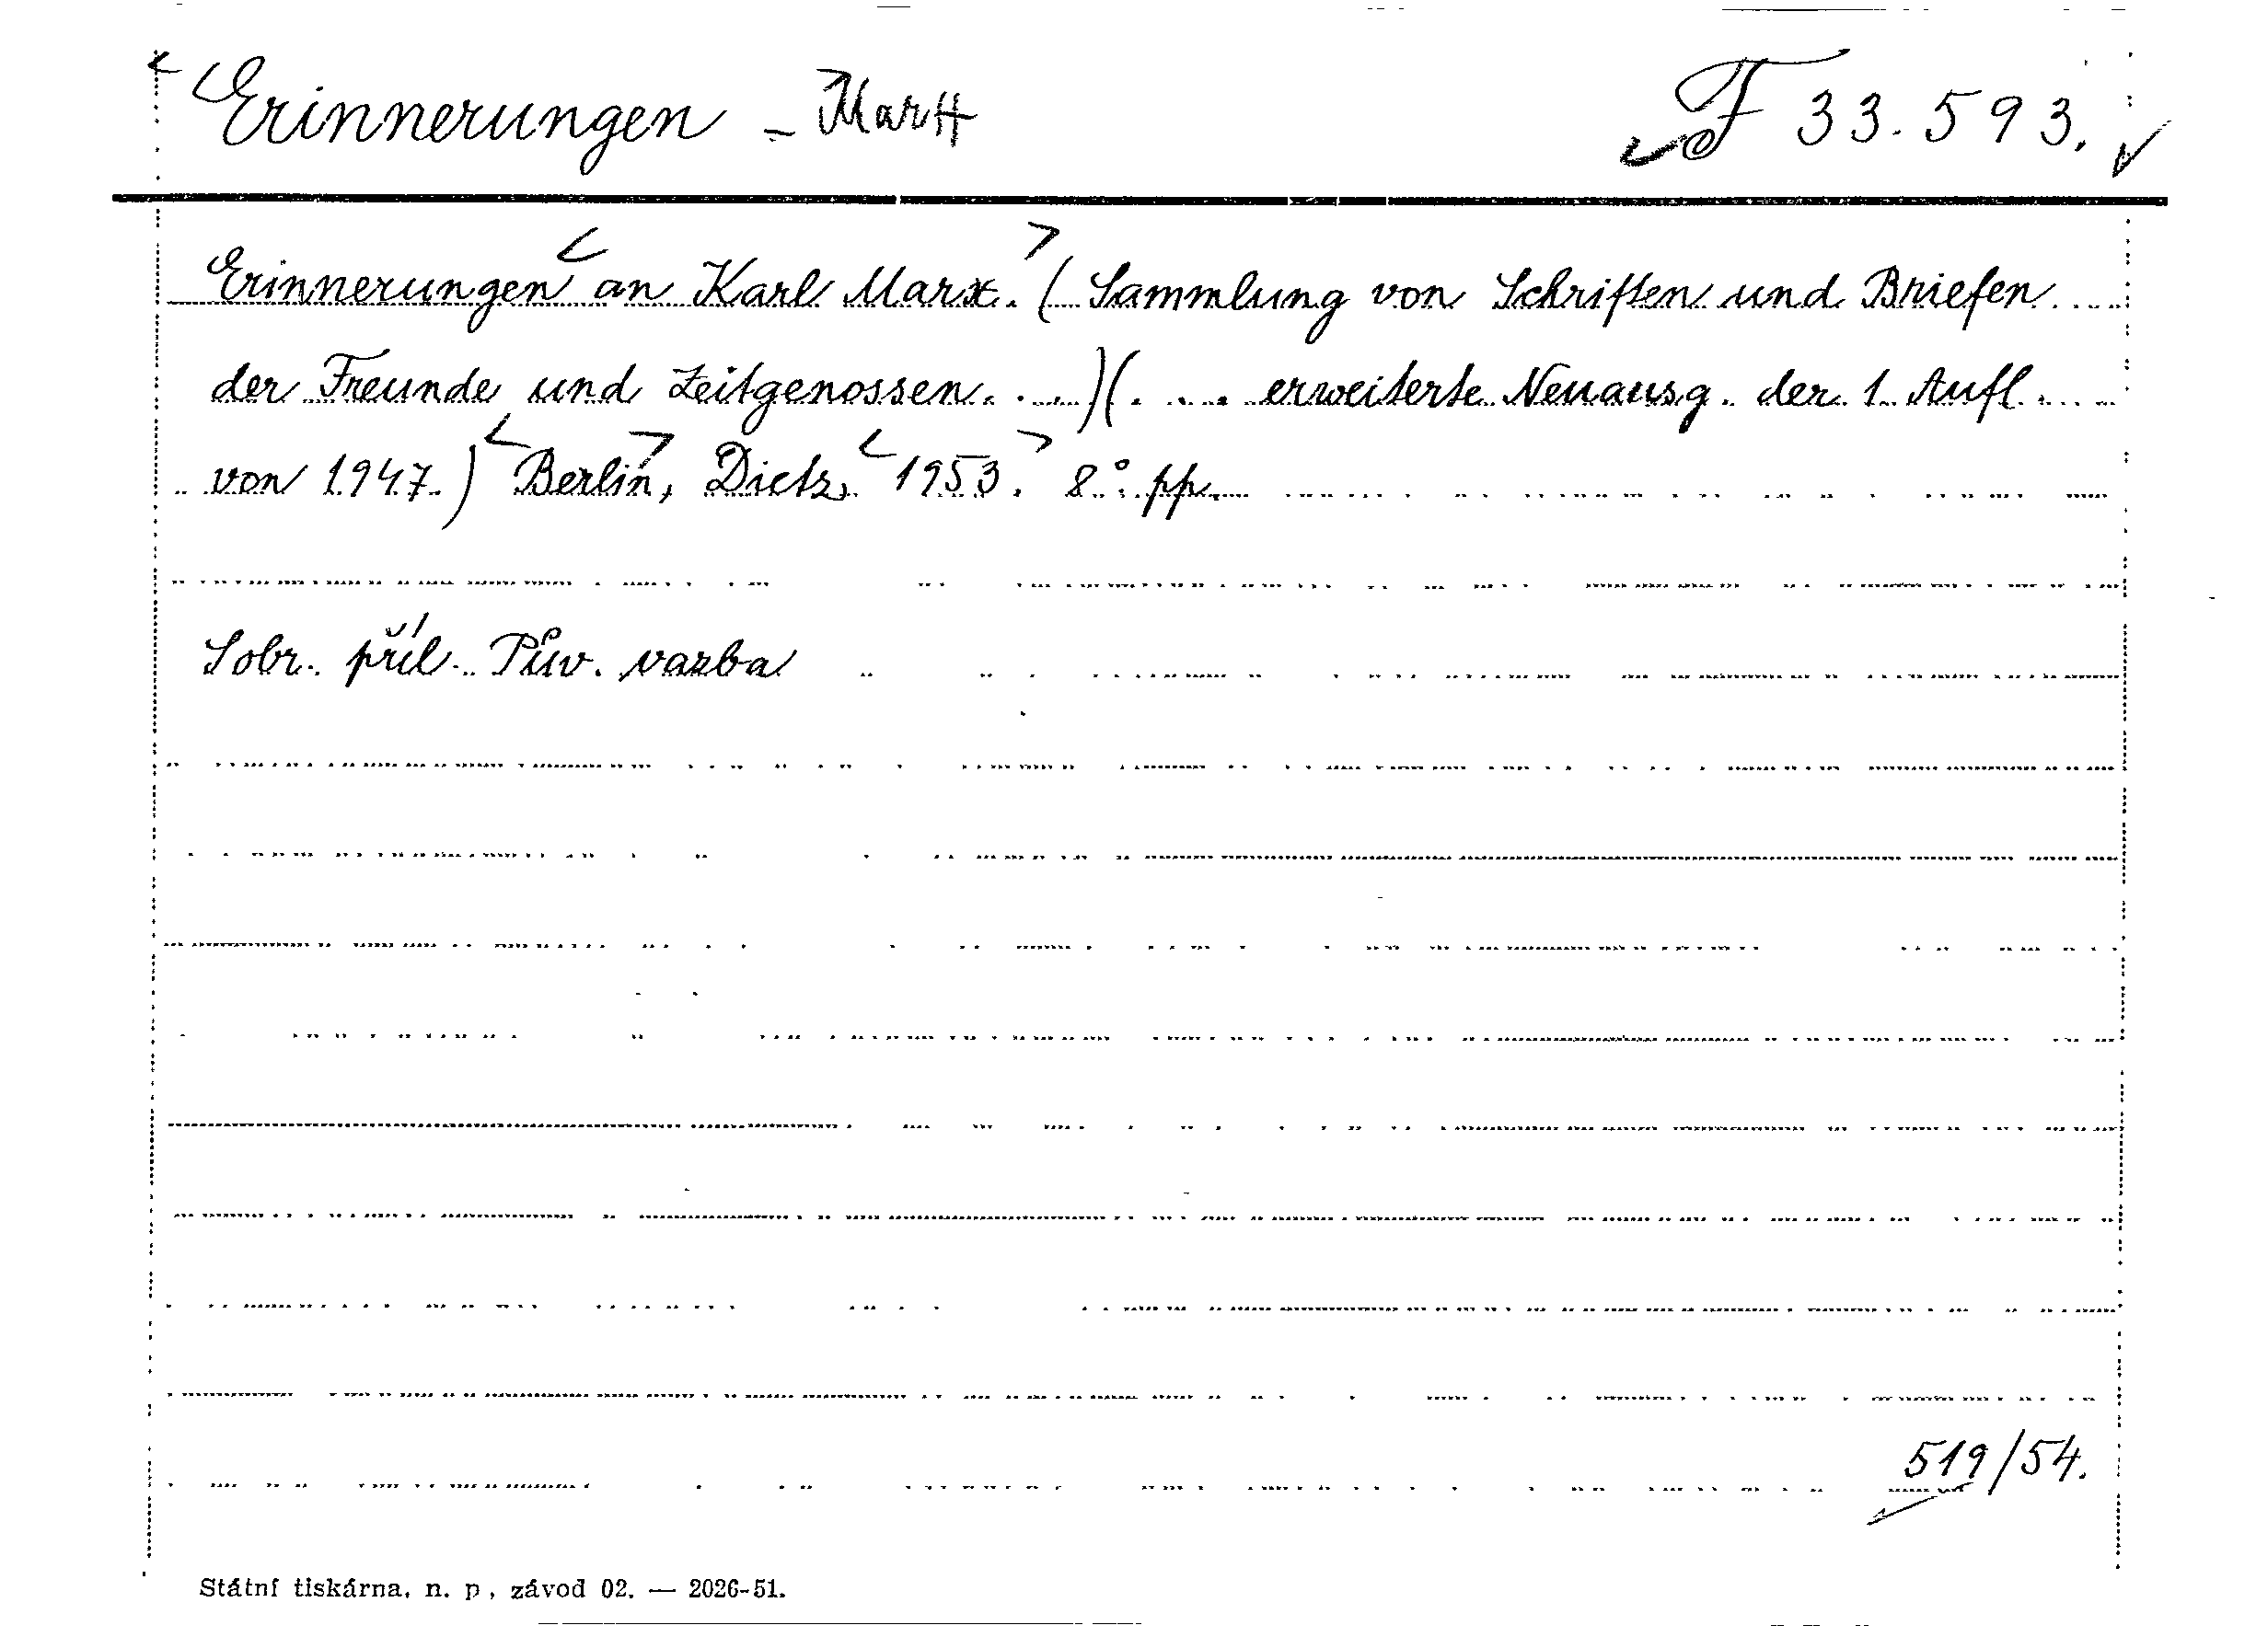 Erinnerungen - Marx F 33.593.
Erinnerungen an Karl Marx. (Sammlung von Schriften und Briefen
der Freunde und Zeitgenossen. . . .)(. . . . erweiterte Neuausg. der 1. Aufl.
von 1947.) Berlin, Dietz, 1953. 8°. pp.
Sobr. příl. Pův. vazba
519/54.
Státní tiskárna, n. p., závod 02. — 2026-51.